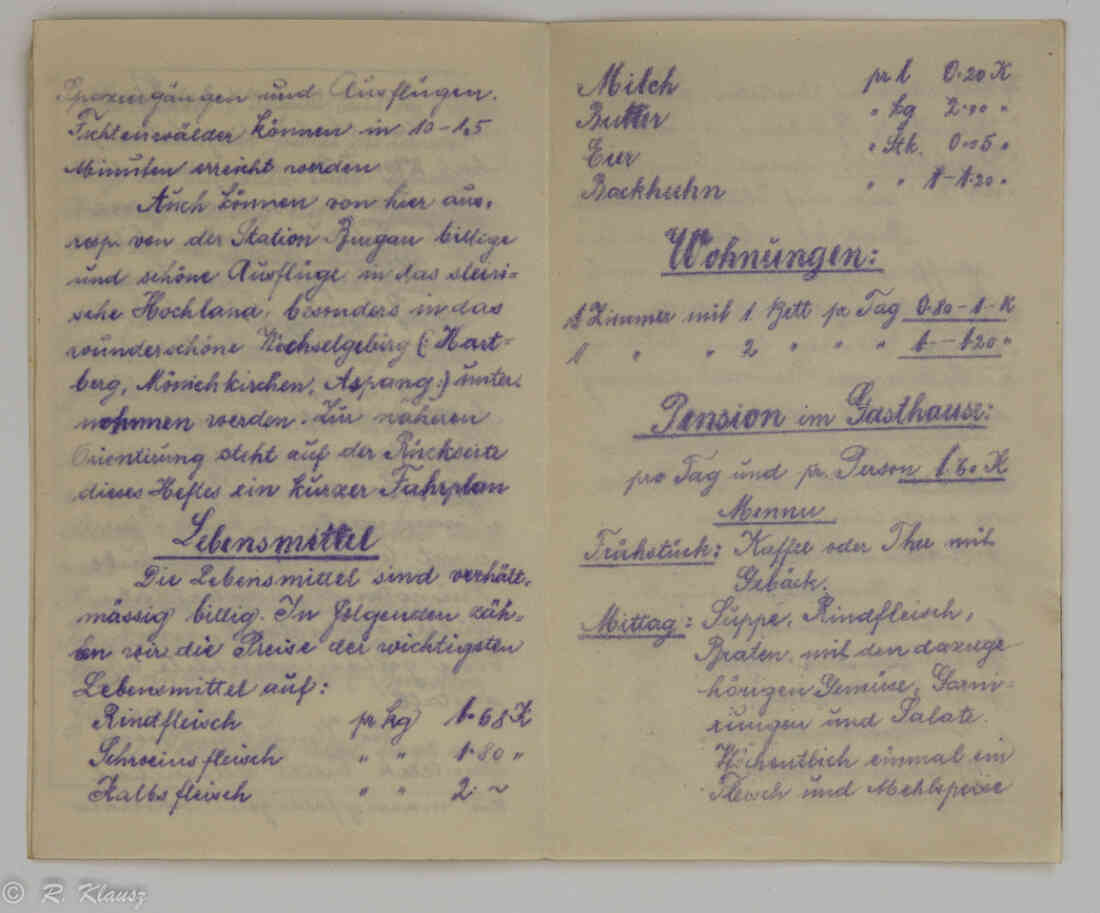 Spaziergängen und Ausflügen.
Fichtenwälder können in 10-15
Minuten erreicht werden
Auch können von hier aus,
resp. von der Station Burgau billige
und schöne Ausflüge in das steiri-
sche Hochland, besonders in das
wunderschöne Wechselgebirg (: Hart-
berg, Mönichkirchen, Aspang:) unter-
nommen werden. Zur näheren
Orientirung steht auf der Rückseite
dieses Heftes ein kurzer Fahrplan
Lebensmittel
Die Lebensmittel sind verhält-
mässig billig. In folgenden zäh-
len wir die Preise der wichtigsten
Lebensmittel auf:
Rindfleisch pr kg 1.68 K
Schweinsfleisch " " 1.80 "
Kalbsfleisch " " 2.~
Milch pr l 0.20 K
Butter " kg 2.00 "
Eier " Stk. 0.05 "
Backhuhn " " 1-1.20 "
Wohnungen:
1 Zimmer mit 1 Bett pr Tag 0.80-1-K
1 " " 2 " " " 1--1.20 "
Pension im Gasthause:
pro Tag und pr. Person 1.60 K
Mennu
Frühstück: Kaffee oder Thee mit
Gebäck.
Mittag: Suppe, Rindfleisch,
Braten, mit den dazuge-
hörigen Gemüse, Garni-
rungen und Salate.
Wöchentlich einmal ein
Fleisch und Mehlspeise
© R. Klausz